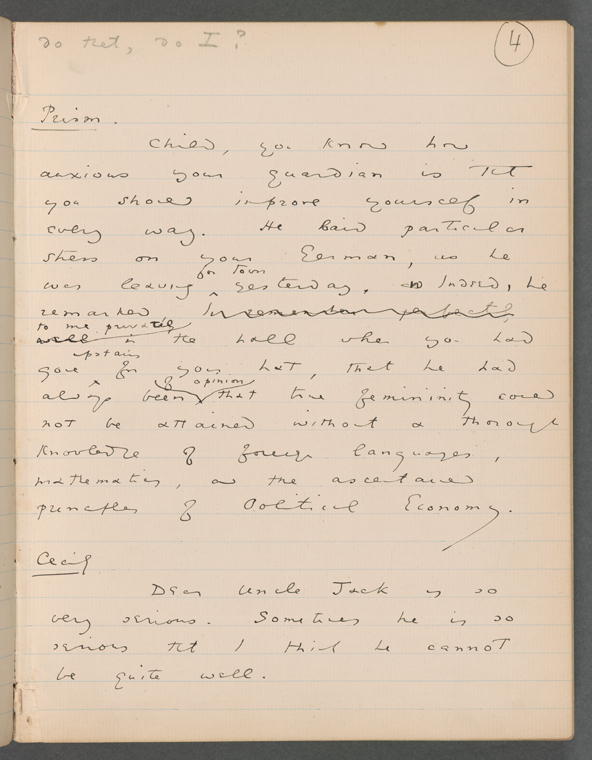 do not, do I?
4
Prism.
Child, you know how
anxious your guardian is that
you should improve yourself in
every way. He laid particular
stress on your German, as he
for town
was leaving yesterday. Indeed, he
remarked I remember perfectly
to me privately
well in the hall when you had
upstairs
gone for your hat, that he had
of opinion
always been that true femininity could
not be attained without a thorough
knowledge of foreign languages,
mathematics, and the ascertained
principles of Political Economy.
Cecily
Dear Uncle Jack is so
very serious. Sometimes he is so
serious that I think he cannot
be quite well.